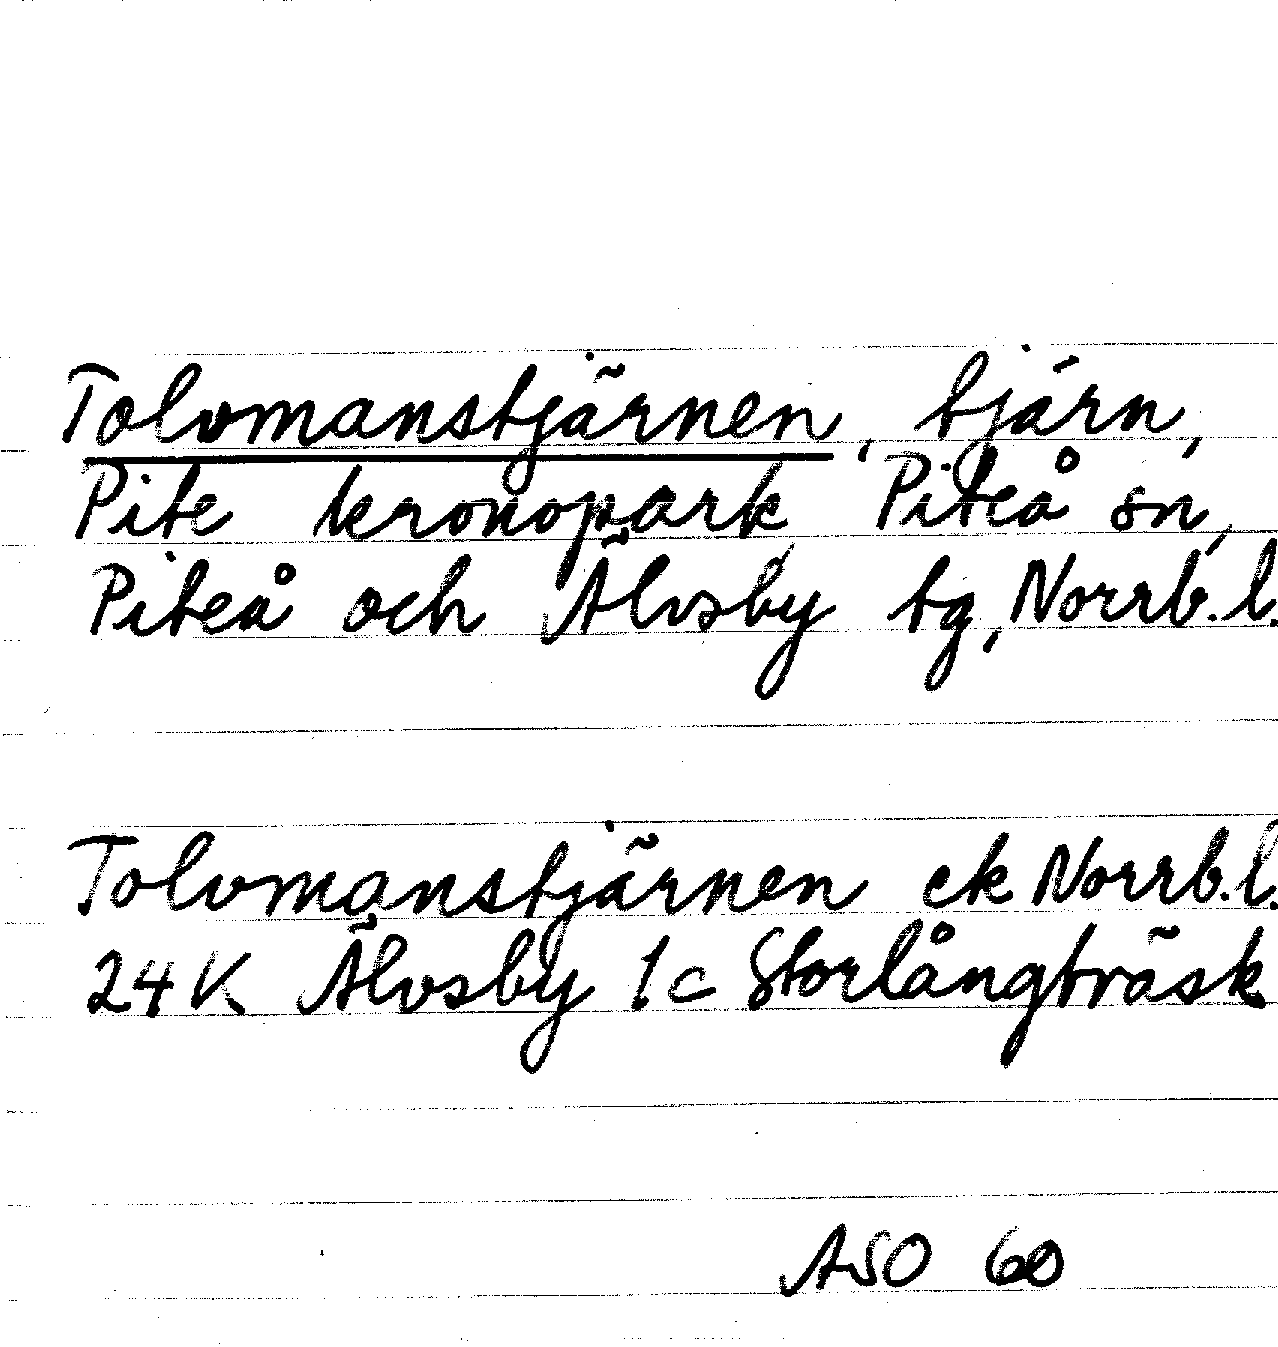 Tolvmanstjärnen, tjärn,
Pite kronopark, Piteå sn,
Piteå och Älvsby tg, Norrb.l.
Tolvmanstjärnen ek Norrb.l.
24K Älvsby 1c Storlångträsk
ASO 60